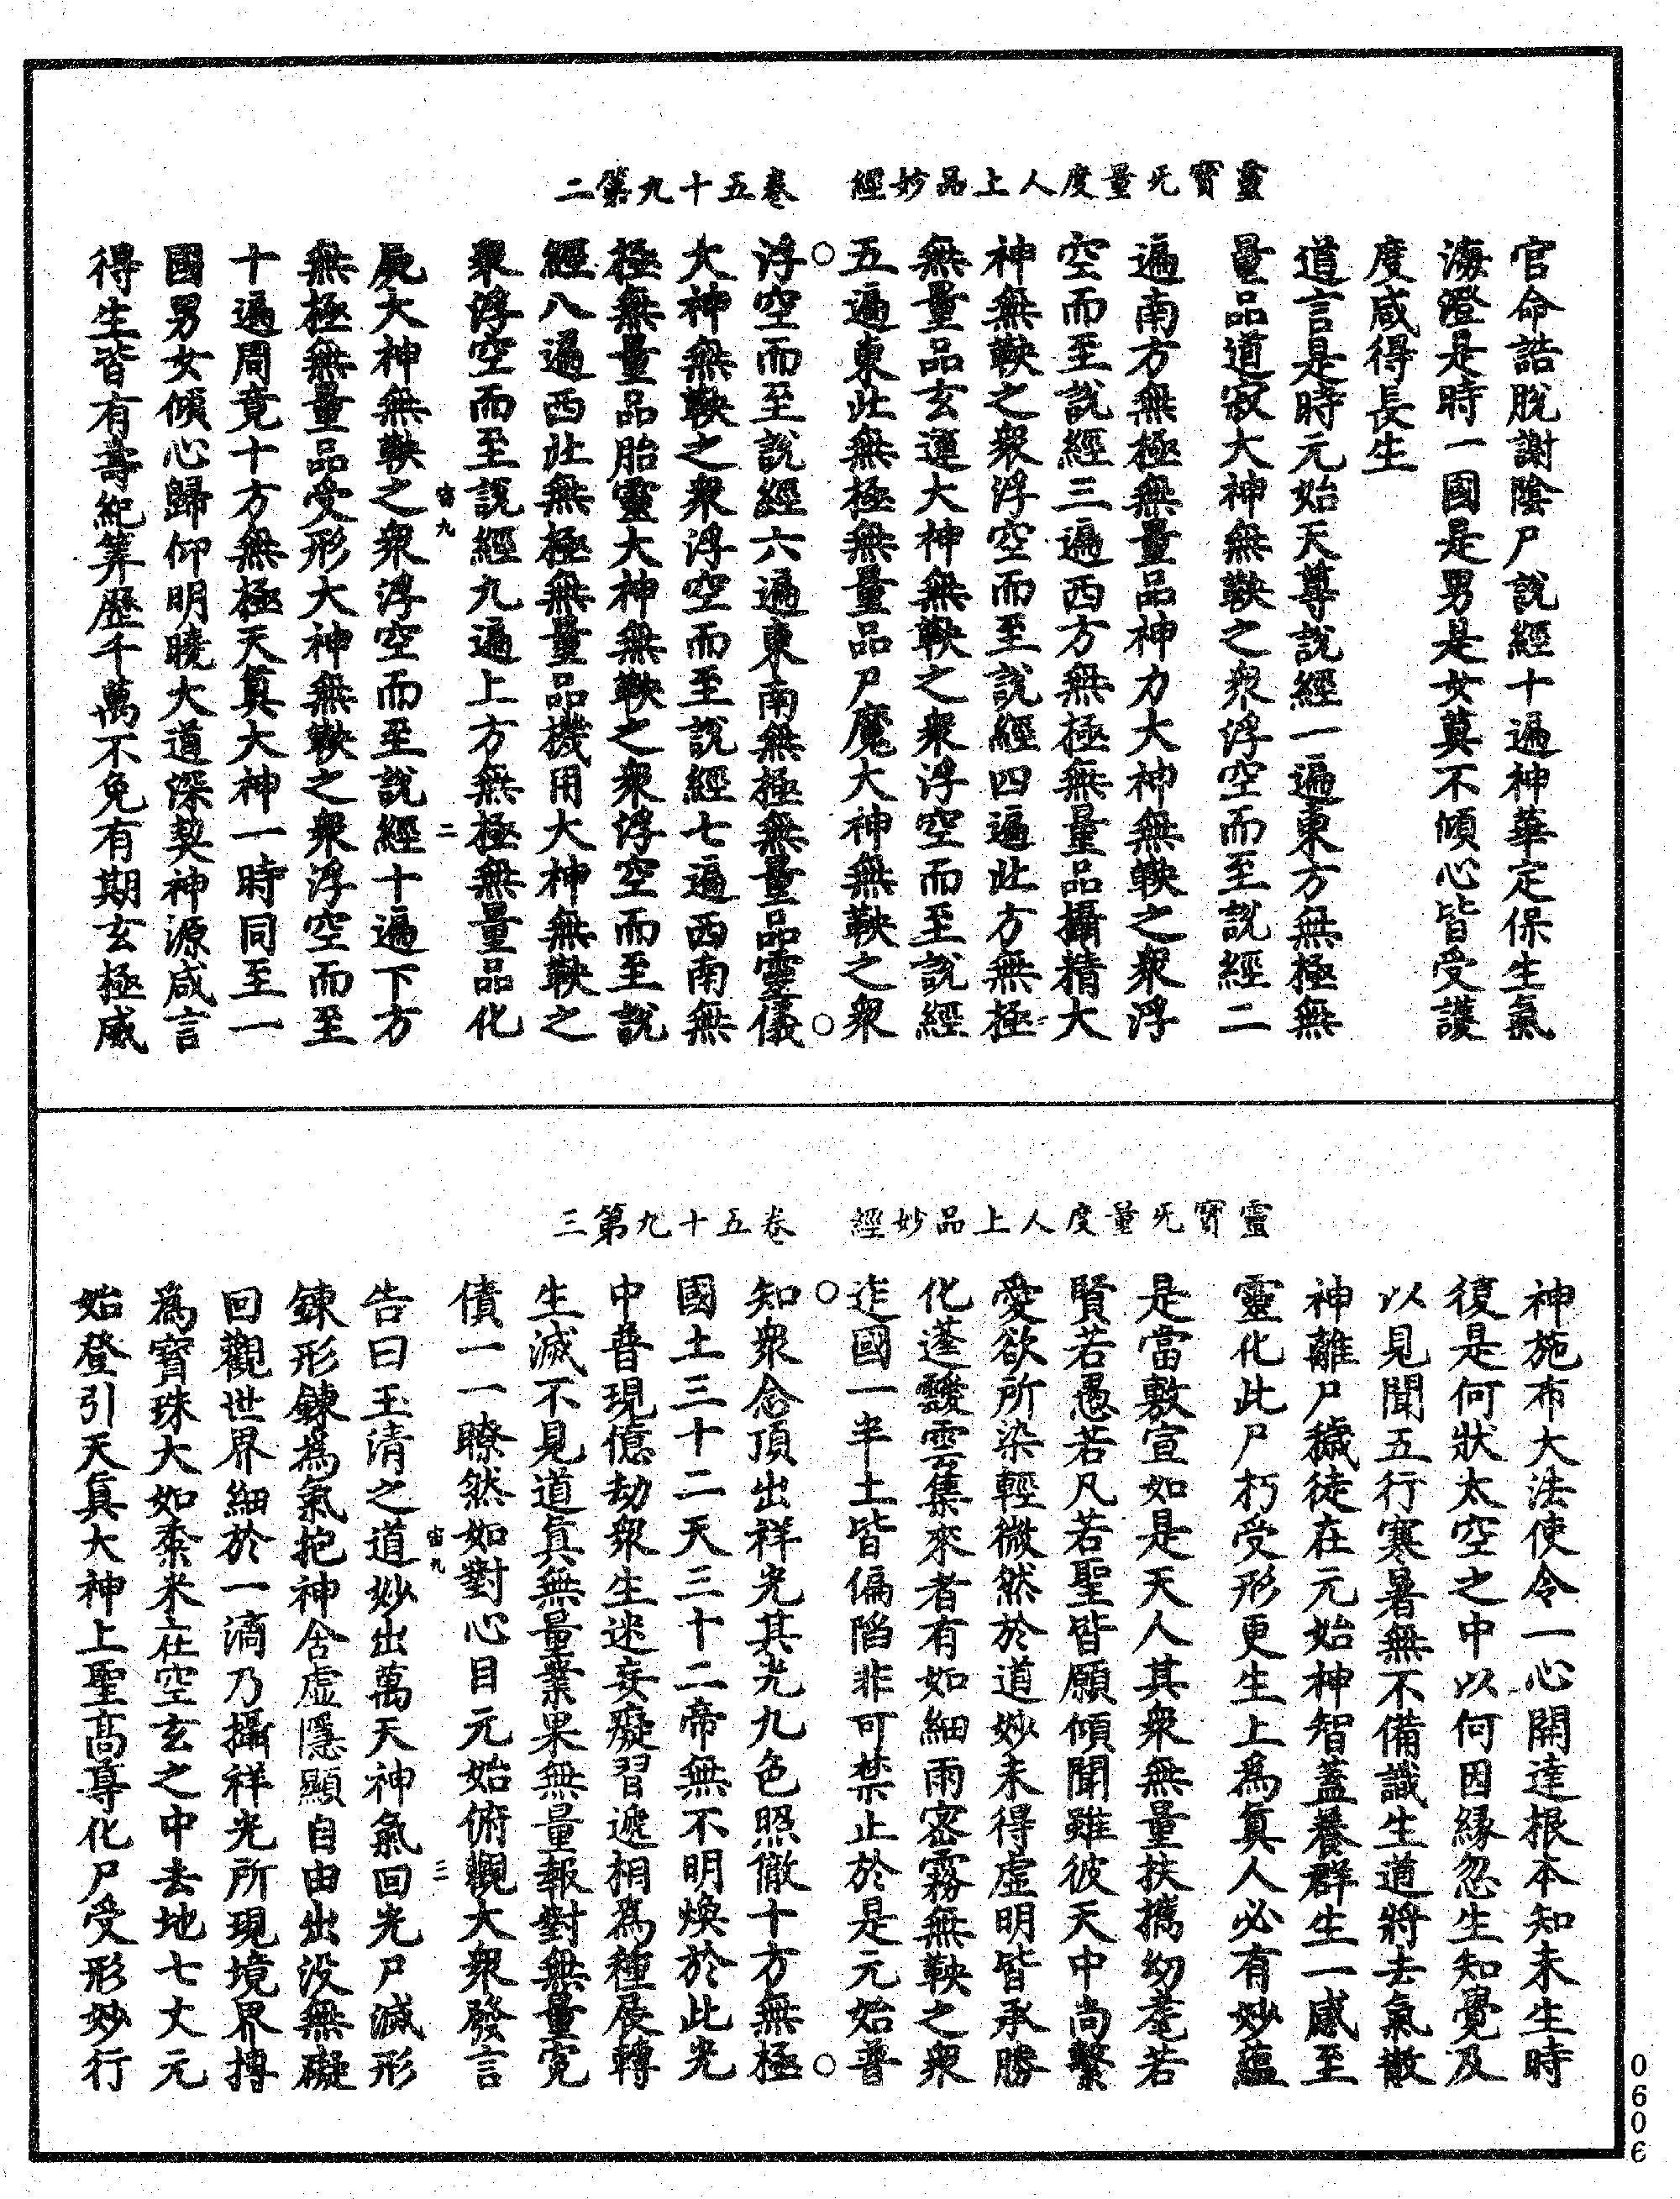 靈寶无量度人上品妙經　卷五十九第二
官命誥脫謝陰尸說經十遍神華定保生氣
海澄是時一國是男是女莫不傾心皆受護
度咸得長生
道言是時元始天尊說經一遍東方無極無
量品道寂大神無鞅之眾浮空而至說經二
遍南方無極無量品神力大神無鞅之眾浮
空而至說經三遍西方無極無量品攝精大
神無鞅之眾浮空而至說經四遍北方無極
無量品玄運大神無鞅之眾浮空而至說經
五遍東北無極無量品尸魔大神無鞅之眾
浮空而至說經六遍東南無極無量品靈儀
大神無鞅之眾浮空而至說經七遍西南無
極無量品胎靈大神無鞅之眾浮空而至說
經八遍西北無極無量品機用大神無鞅之
眾浮空而至說經九遍上方無極無量品化
宙九　二
屍大神無鞅之眾浮空而至說經十遍下方
無極無量品受形大神無鞅之眾浮空而至
十遍周竟十方無極天真大神一時同至一
國男女傾心歸仰明曉大道深契神源咸言
得生皆有壽紀筭歷千萬不免有期玄極威
靈寶无量度人上品妙經　卷五十九第三
神施布大法使令一心開達根本知未生時
復是何狀太空之中以何因緣忽生知覺及
以見聞五行寒暑無不備識生道將去氣散
神離尸穢徒在元始神智蓋養群生一感至
靈化此尸朽受形更生上為真人必有妙蘊
是當敷宣如是天人其眾無量扶攜幼耄若
賢若愚若凡若聖皆願傾聞雖彼天中尚繫
愛欲所染輕微然於道妙未得虛明皆承勝
化蓬靉雲集來者有如細雨密霧無鞅之眾
迮國一半土皆偏陷非可禁止於是元始普
知眾念頂出祥光其光九色照徹十方無極
國土三十二天三十二帝無不明煥於此光
中普現億劫眾生迷妄癡習遞相為種展轉
生滅不見道真無量業果無量報對無量冤
債一一瞭然如對心目元始俯觀大眾發言
宙九　三
告曰玉清之道妙出萬天神氣回光尸滅形
鍊形鍊為氣抱神含虛隱顯自由出沒無礙
回觀世界細於一滴乃攝祥光所現境界摶
為寶珠大如黍米在空玄之中去地七丈元
始登引天真大神上聖高尊化尸受形妙行
0606